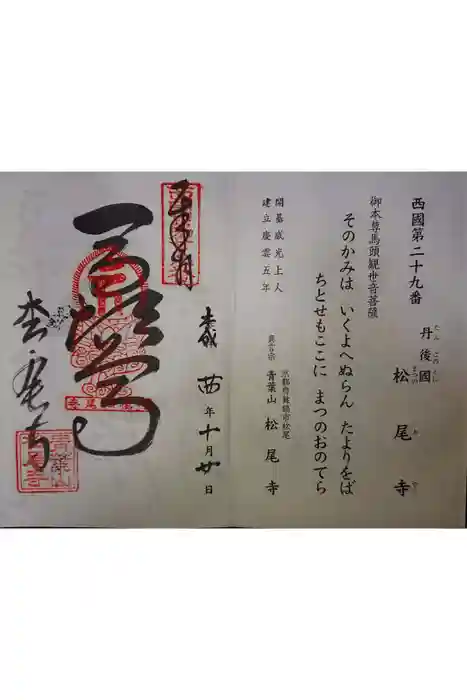 西國第二十九番
丹後國 松尾寺
たん ごの くに まつの を でら
御本尊馬頭観世音菩薩
そのかみは いくよへぬらん たよりをば
ちとせもここに まつのおのてら
開基威光上人
建立慶雲五年
京都府舞鶴市松尾
真言宗 青葉山 松尾寺
歳 酉 年 十 月 廿 日
奉拝
松尾寺